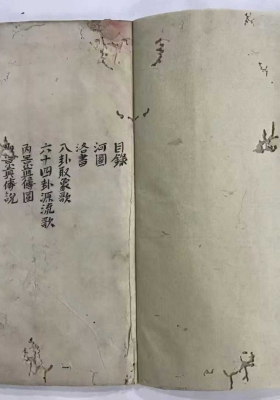 目錄
河圖
洛書
八卦取象歌
六十四卦源流歌
真傳圖
真傳說